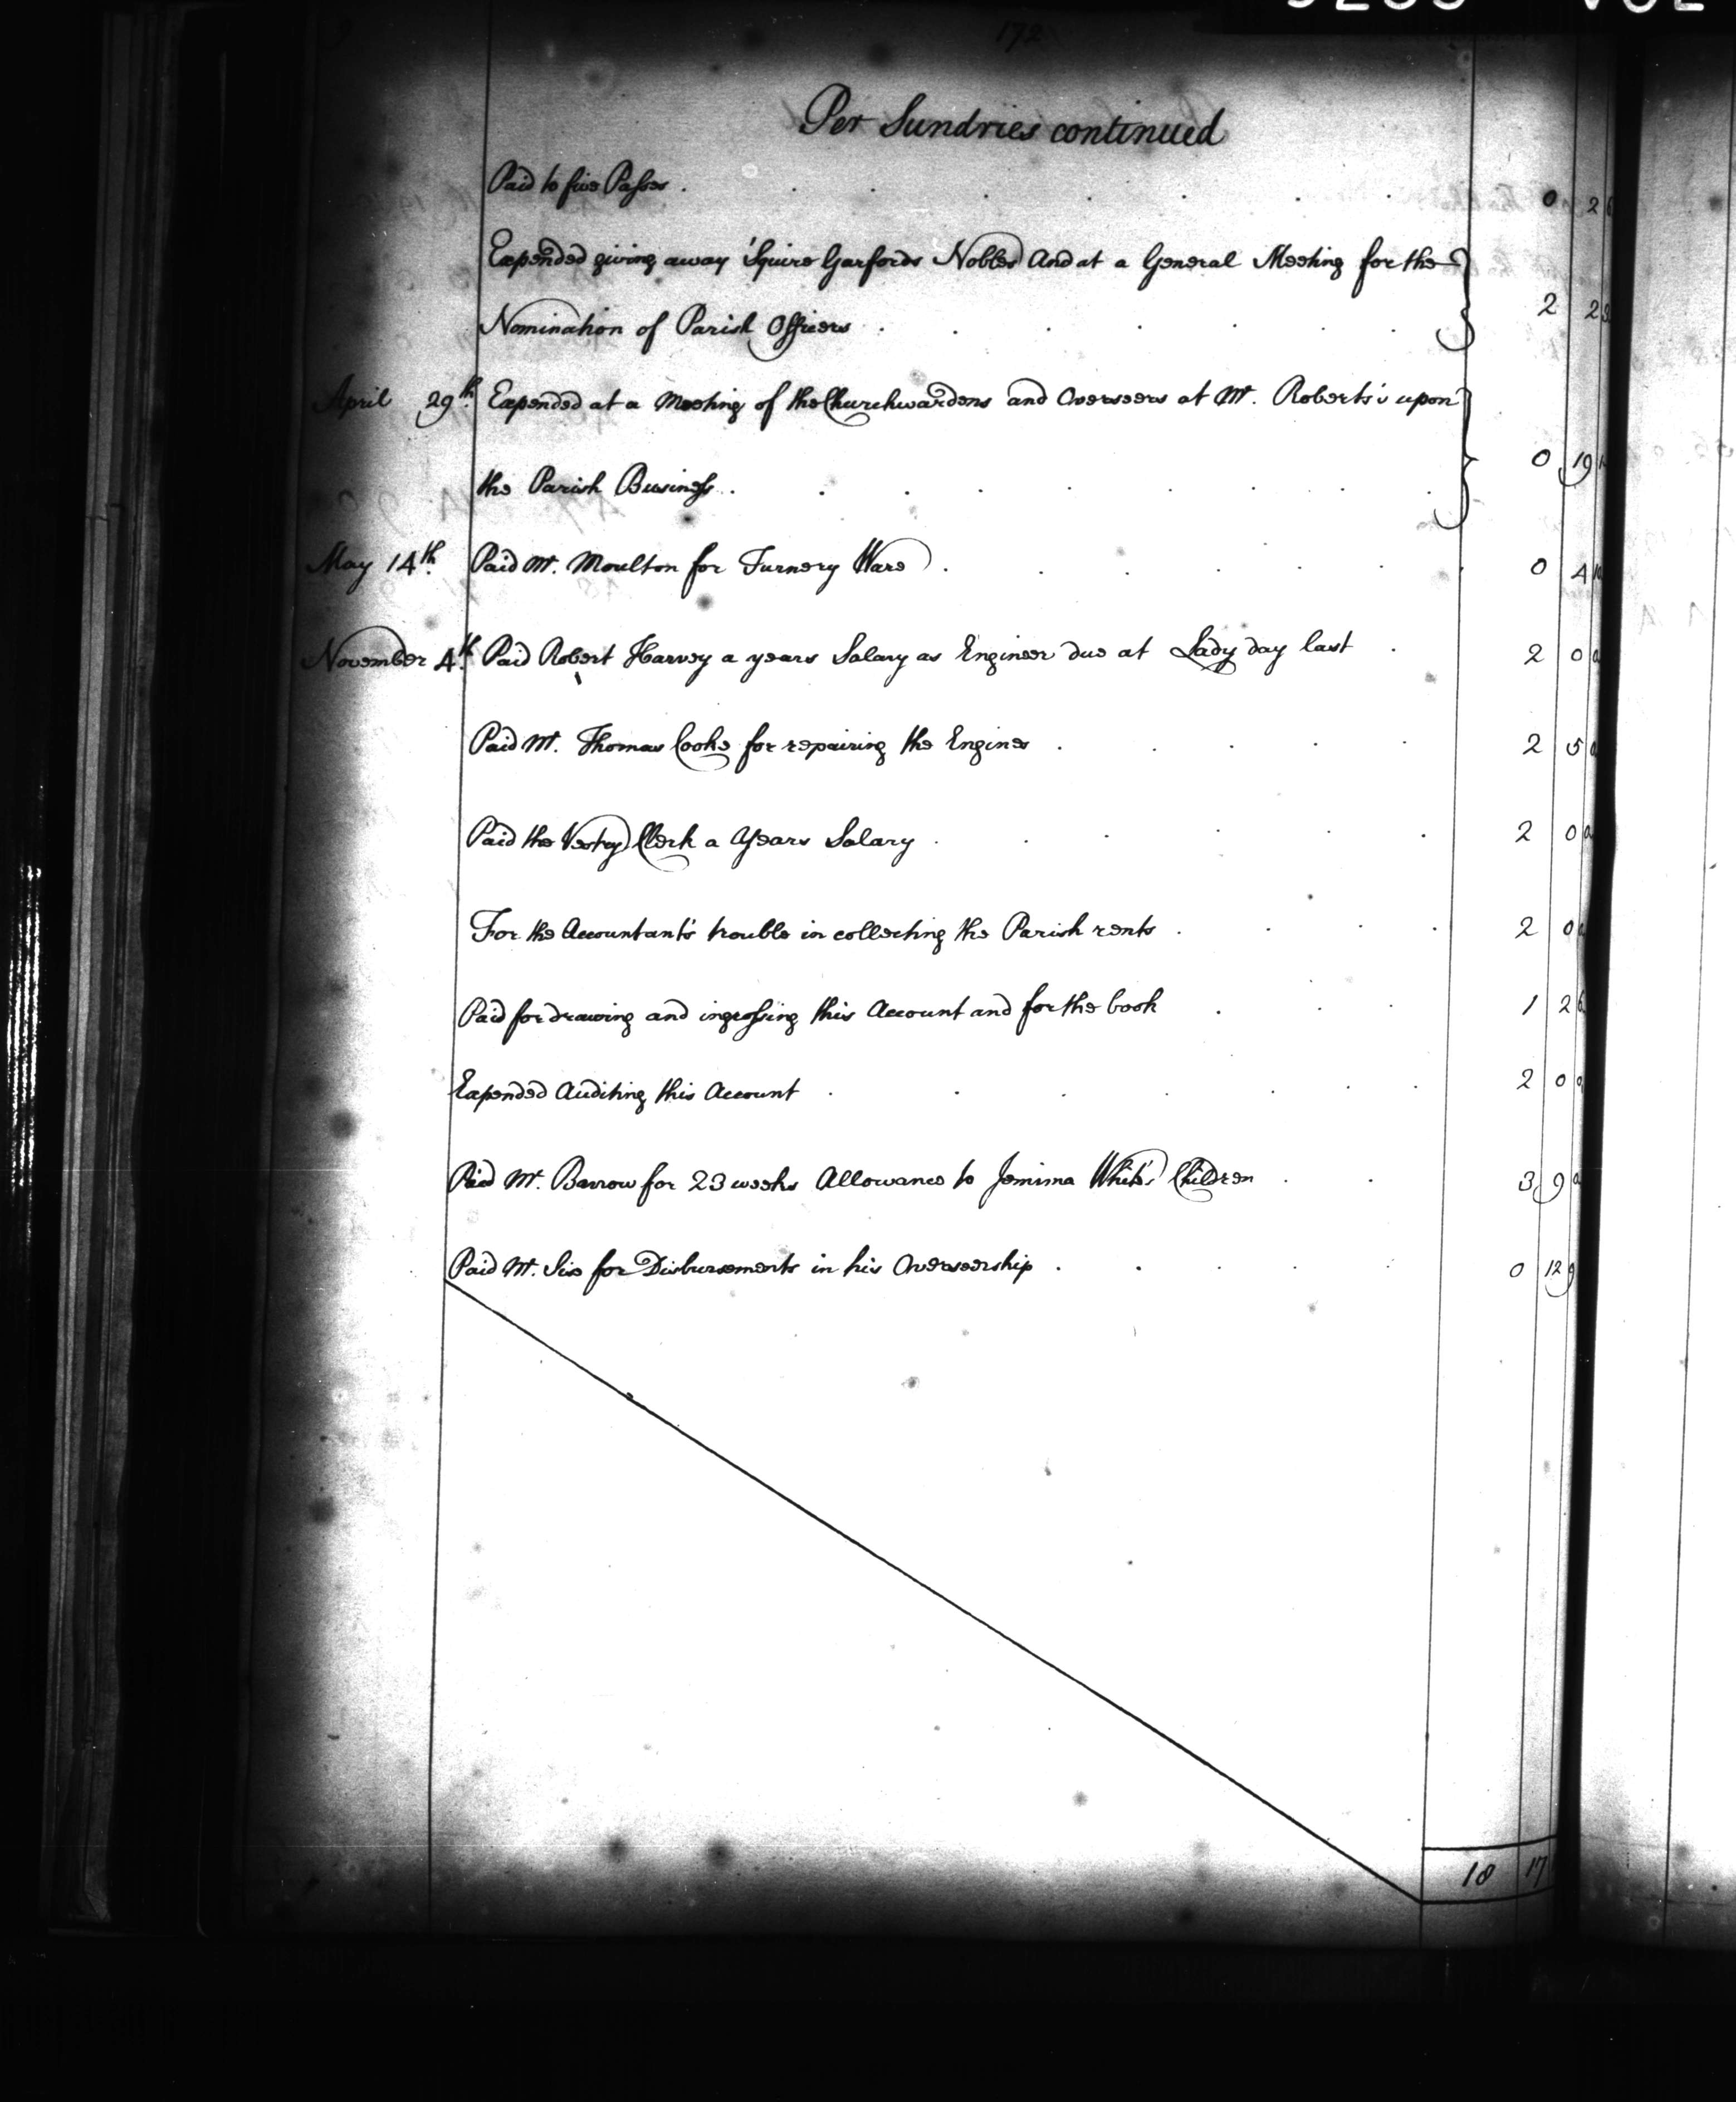 172
Per Sundries continued
Paid to five Passes . . . . . . . 0 2 6
Expended giving away 'Squire Garfords Nobles And at a General Meeting for the
Nomination of Parish Officers . . . . . . . 2 2
April 29th. Expended at a Meeting of the Churchwardens and Overseers at Mr. Roberts's upon
the Parish Business . . . . . . . . 0 19
May 14th. Paid Mr. Moulton for Turnery Ware . . . . . . 0 4
November 4th. Paid Robert Harvey a years Salary as Engineer due at Lady day last . 2 0 0
Paid Mr. Thomas Cooke for repairing the Engines . . . . . 2 5
Paid the Vestry Clerk a Years Salary . . . . . 2 0 0
For the Accountant's trouble in collecting the Parish rents . . . . 2 0
Paid for drawing and ingrossing this Account and for the book . . . 1 2 6
Expended Auditing this Account . . . . . . . 2 0 0
Paid Mr. Barrow for 23 weeks Allowance to Jemima White's Children . . 3 9 0
Paid Mr. Sise for Disbursements in his Overseership . . . . . 0 12 9
18 17